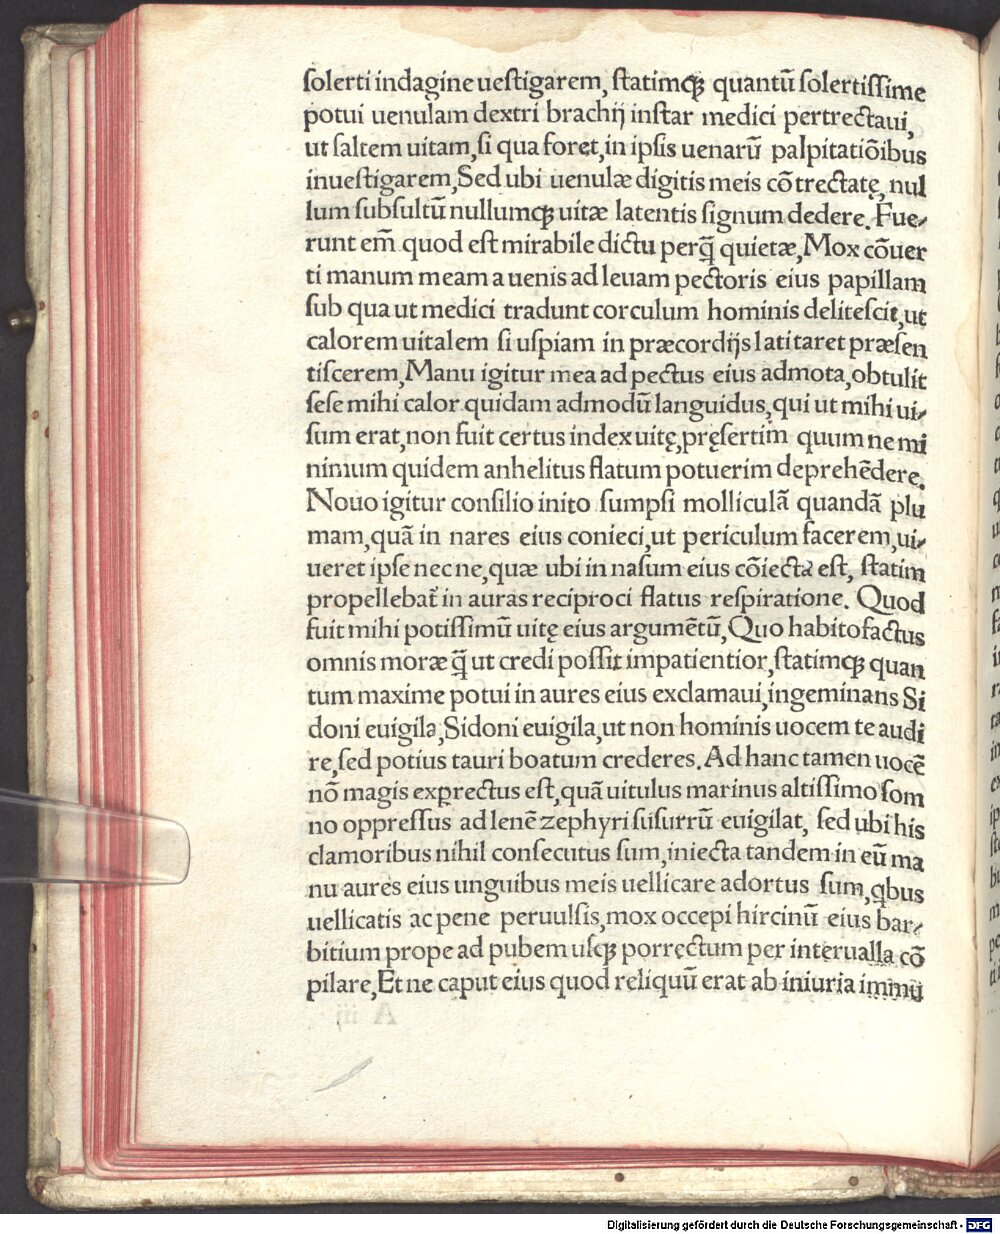 ſolerti indagine ueſtigarem, ſtatimqꝫ quantū ſolertiſſime
potui uenulam dextri brachij inſtar medici pertrectaui,
ut ſaltem uitam, ſi qua foret, in ipſis uenarū palpitatiōibus
inueſtigarem, Sed ubi uenulæ digitis meis cōtrectatę, nul
lum ſubſultū nullumqꝫ uitæ latentis ſignum dedere. Fue⸗
runt em̄ quod eſt mirabile dictu perq̄ quietæ, Mox cōuer
ti manum meam a uenis ad leuam pectoris eius papillam
ſub qua ut medici tradunt corculum hominis deliteſcit, ut
calorem uitalem ſi uſpiam in præcordijs latitaret præſen
tiſcerem, Manu igitur mea ad pectus eius admota, obtulit
ſeſe mihi calor quidam admodū languidus, qui ut mihi ui⸗
ſum erat, non fuit certus index uitę, pręſertim quum ne mi
nimum quidem anhelitus flatum potuerim deprehēdere.
Nouo igitur conſilio inito ſumpſi molliculā quandā plu
mam, quā in nares eius conieci, ut periculum facerem, ui⸗
ueret ipſe nec ne, quæ ubi in naſum eius cōiecta eſt, ſtatim
propellebat̄ in auras reciproci flatus reſpiratione. Quod
fuit mihi potiſſimū uitę eius argumētū, Quo habito factus
omnis moræ q̄ ut credi poſſit impatientior, ſtatimqꝫ quan
tum maxime potui in aures eius exclamaui, ingeminans Si
doni euigila, Sidoni euigila, ut non hominis uocem te audi
re, ſed potius tauri boatum crederes. Ad hanc tamen uocē
nō magis exꝑrectus eſt, quā uitulus marinus altiſſimo ſom
no oppreſſus ad lenē zephyri ſuſurrū euigilat, ſed ubi his
clamoribus nihil conſecutus ſum, iniecta tandem in eū ma
nu aures eius unguibus meis uellicare adortus ſum, qbus
uellicatis ac pene peruulſis, mox occepi hircinū eius bar⸗
bitium prope ad pubem uſqꝫ porrectum per interualla cō
pilare, Et ne caput eius quod reliquū erat ab iniuria immū
Digitalisierung gefördert durch die Deutsche Forschungsgemeinschaft - DFG